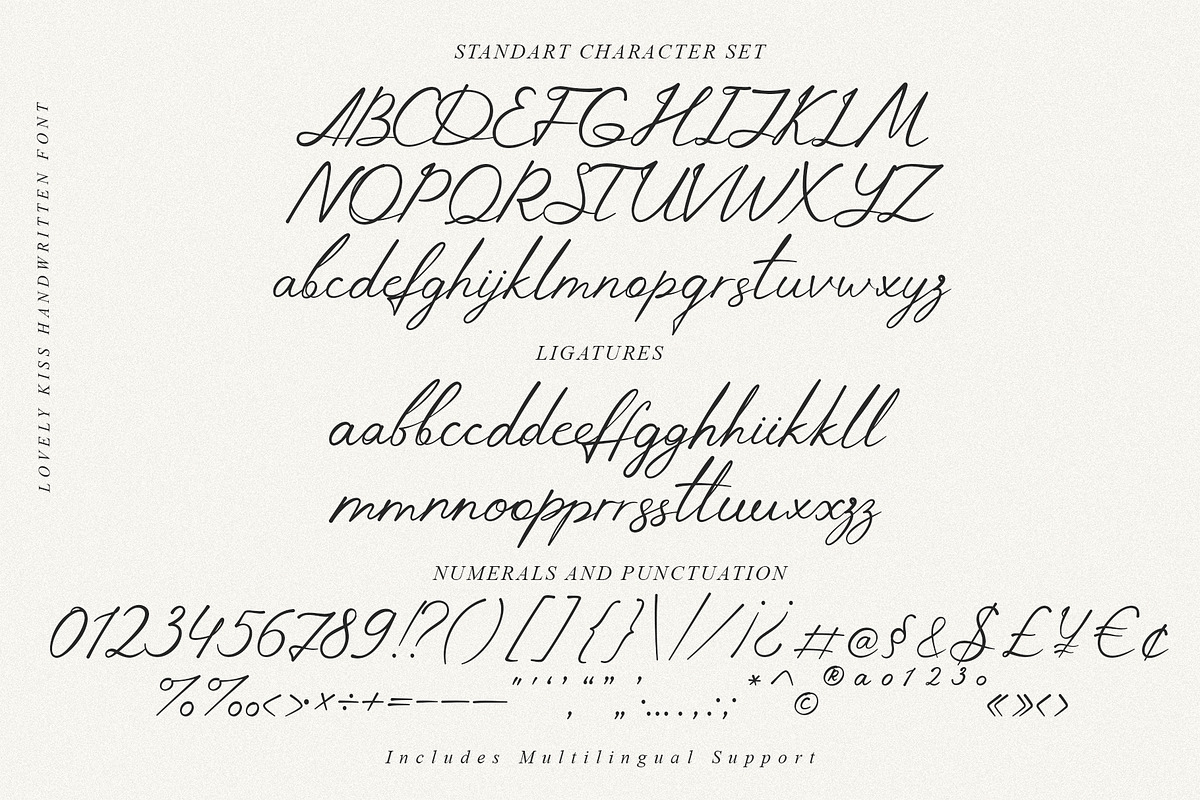 STANDART CHARACTER SET
ABCDEFGHIJKLM
NOPQRSTUVWXYZ
abcdefghijklmnopqrstuvwxyz
LIGATURES
aabbccddeeffgghhiikkll
mmnnoopprrssttuuxxzz
NUMERALS AND PUNCTUATION
0123456789!?()[]{}\|/¡¿#@§&$£¥€¢
%‰<>·×÷+=-–—_ "'‘’“”‚„:…..,;*^®ao123°©«»‹›
Includes Multilingual Support
LOVELY KISS HANDWRITTEN FONT